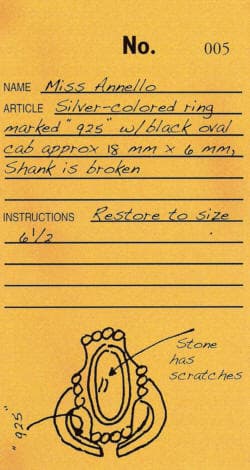 No. 005
NAME Miss Annello
ARTICLE Silver-colored ring
marked "925" w/black oval
cab approx 18 mm x 6 mm,
Shank is broken
INSTRUCTIONS Restore to size
6 1/2
Stone
has
scratches
"925"